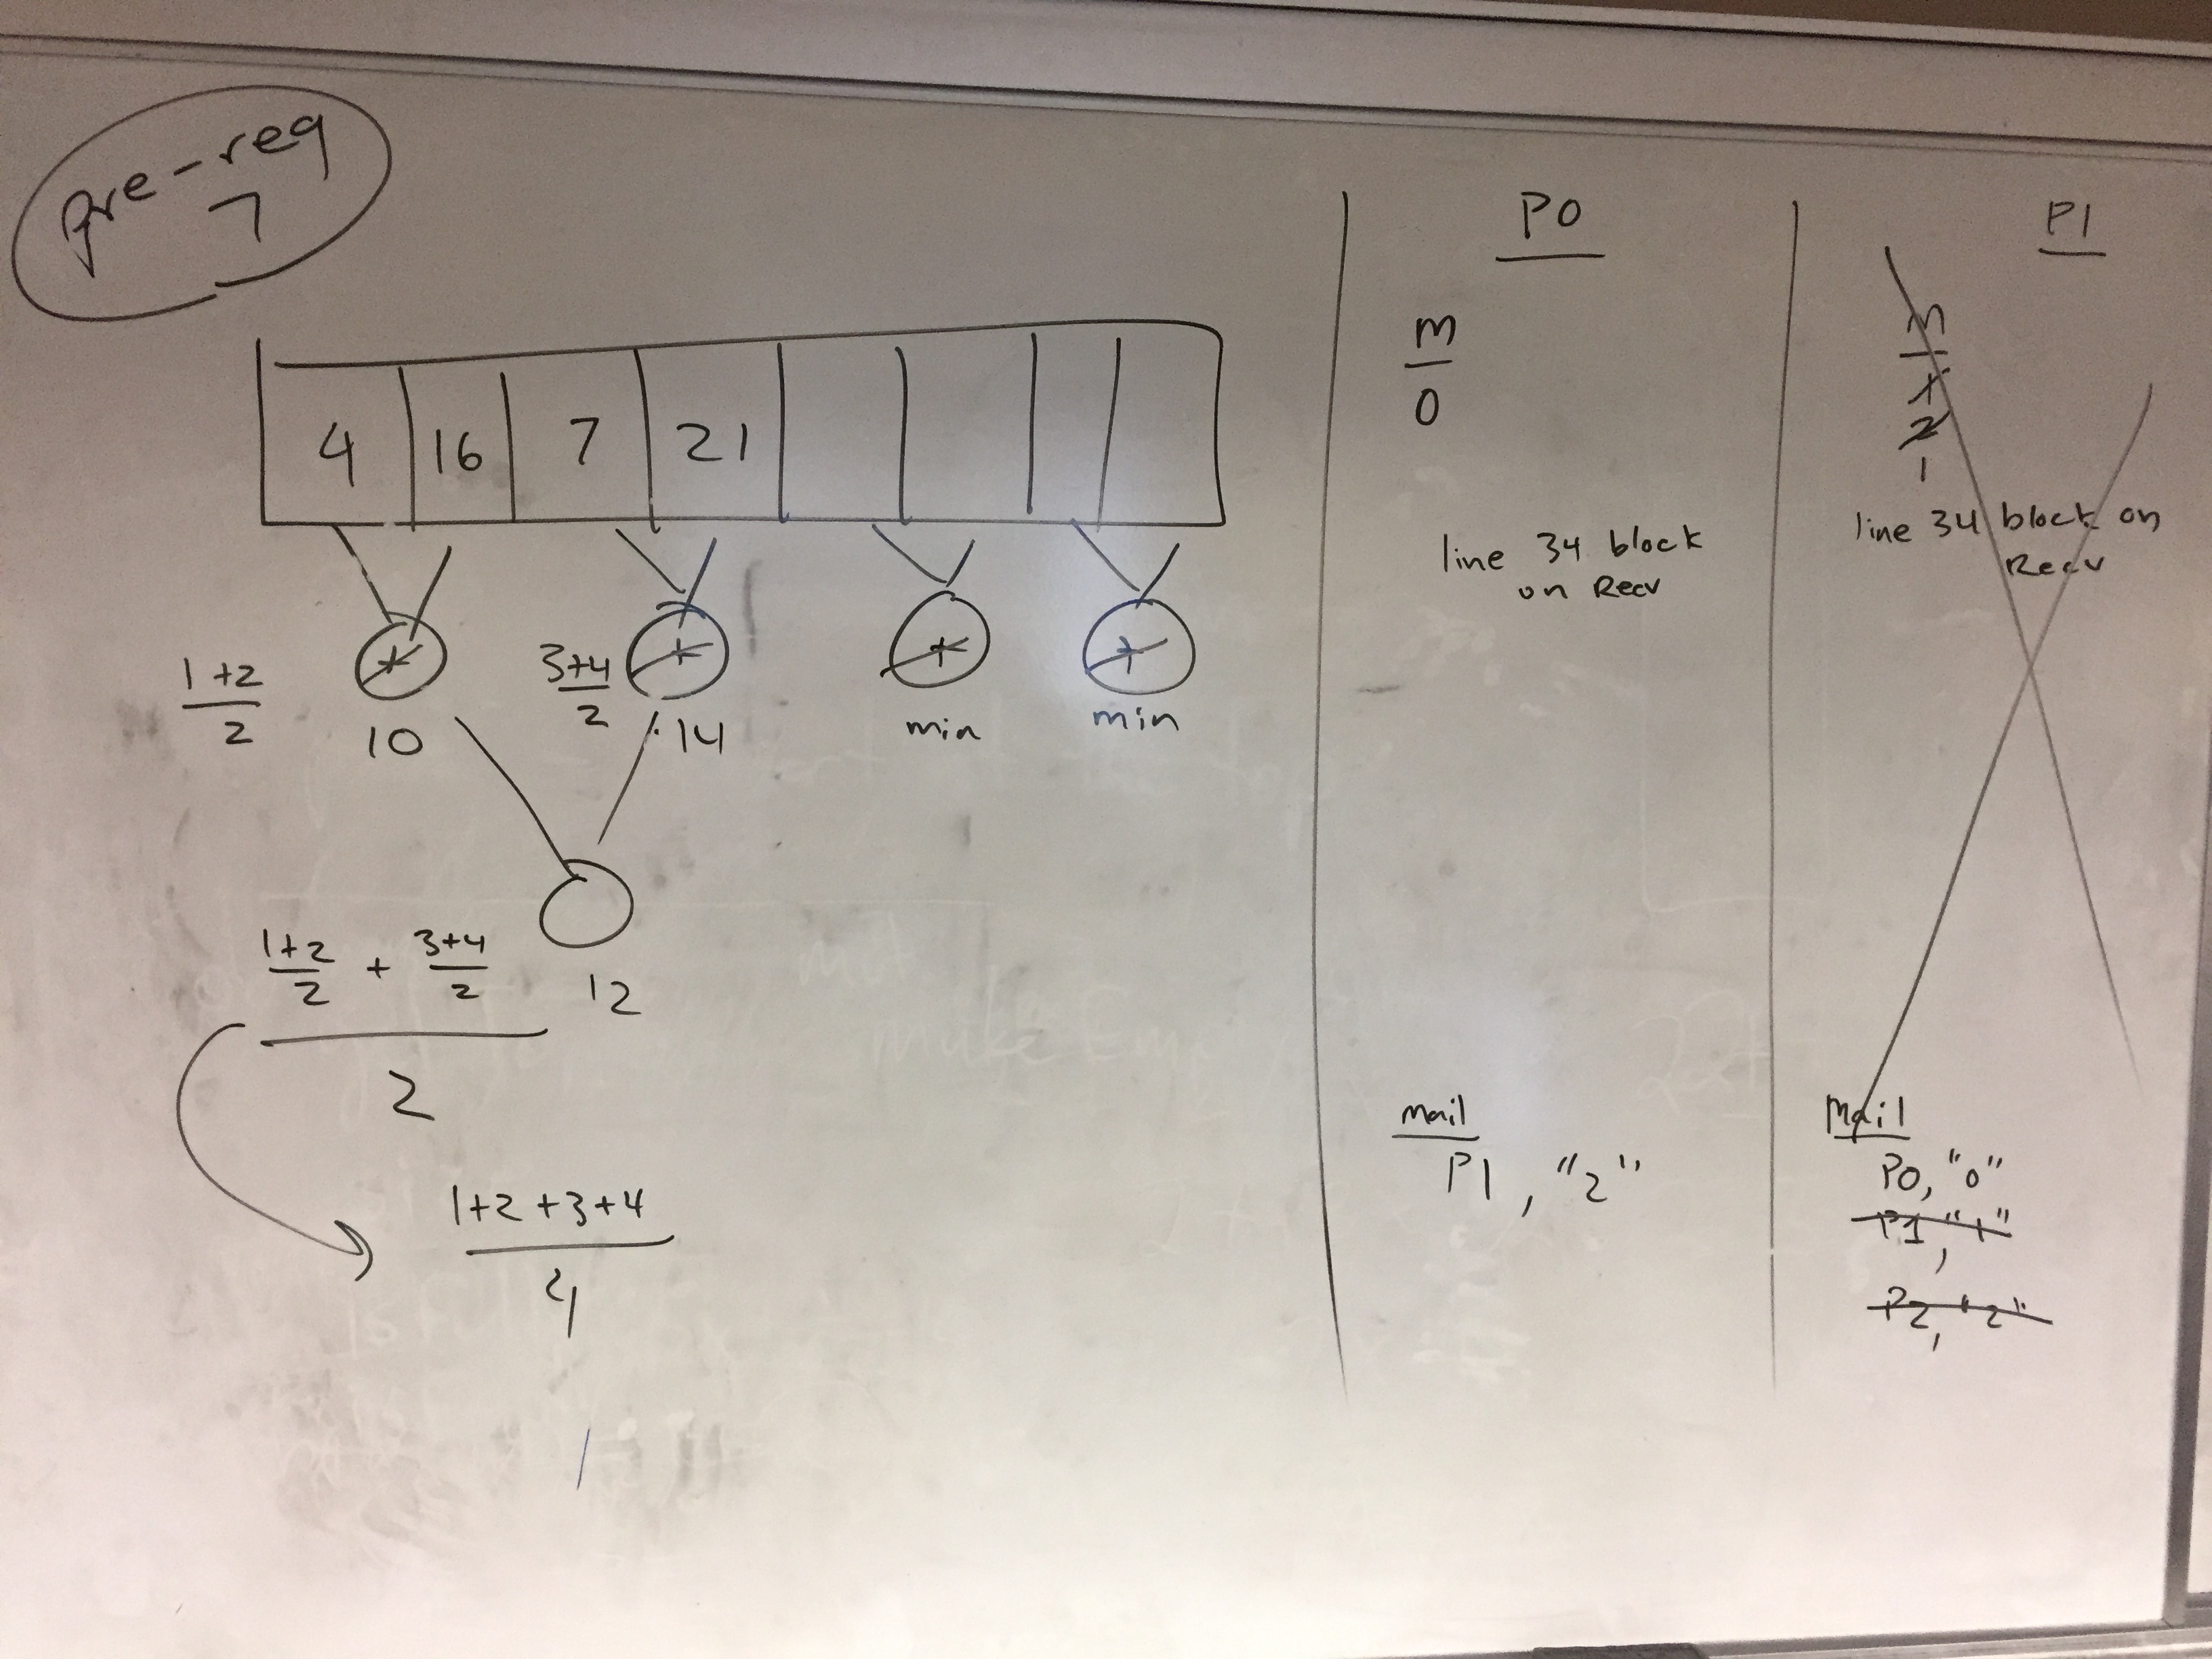 pre-req
7
4 16 7 21
1+2
2
10
3+4
2
14
min
min
1+2
2
+
3+4
2
2
12
1+2+3+4
4
P0
m
0
line 34 block
on Recv
mail
P1, "2"
P1
m
1
2
1
line 34 block on
Recv
Mail
P0, "0"
P1, "1"
P2, "2"